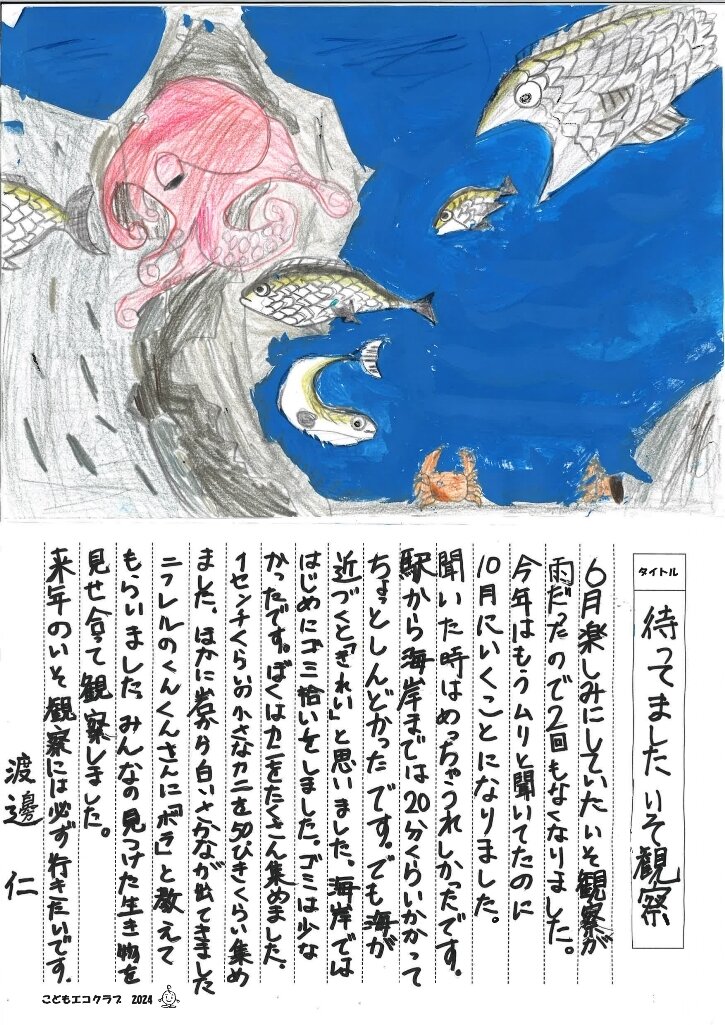 タイトル
待ってました いそ観察
6月楽しみにしていたいそ観察が
雨だったので2回もなくなりました。
今年はもうムリと聞いてたのに
10月にいくことになりました。
聞いた時はめっちゃうれしかったです。
駅から海岸までは20分くらいかかって
ちょっとしんどかったです。でも海が
近づくと「きれい」と思いました。海岸では
はじめにゴミ拾いをしました。ゴミは少な
かったです。ぼくはカニをたくさん集めました。
1センチくらいの小さなカニを50ぴきくらい集め
ました。ほかに岩から白いさかなが出てきました
ニフレルのくんくんさんに「ボラ」と教えて
もらいました。みんなの見つけた生き物を
見せ合って観察しました。
来年のいそ観察には必ず行きたいです。
渡邊 仁
こどもエコクラブ 2024